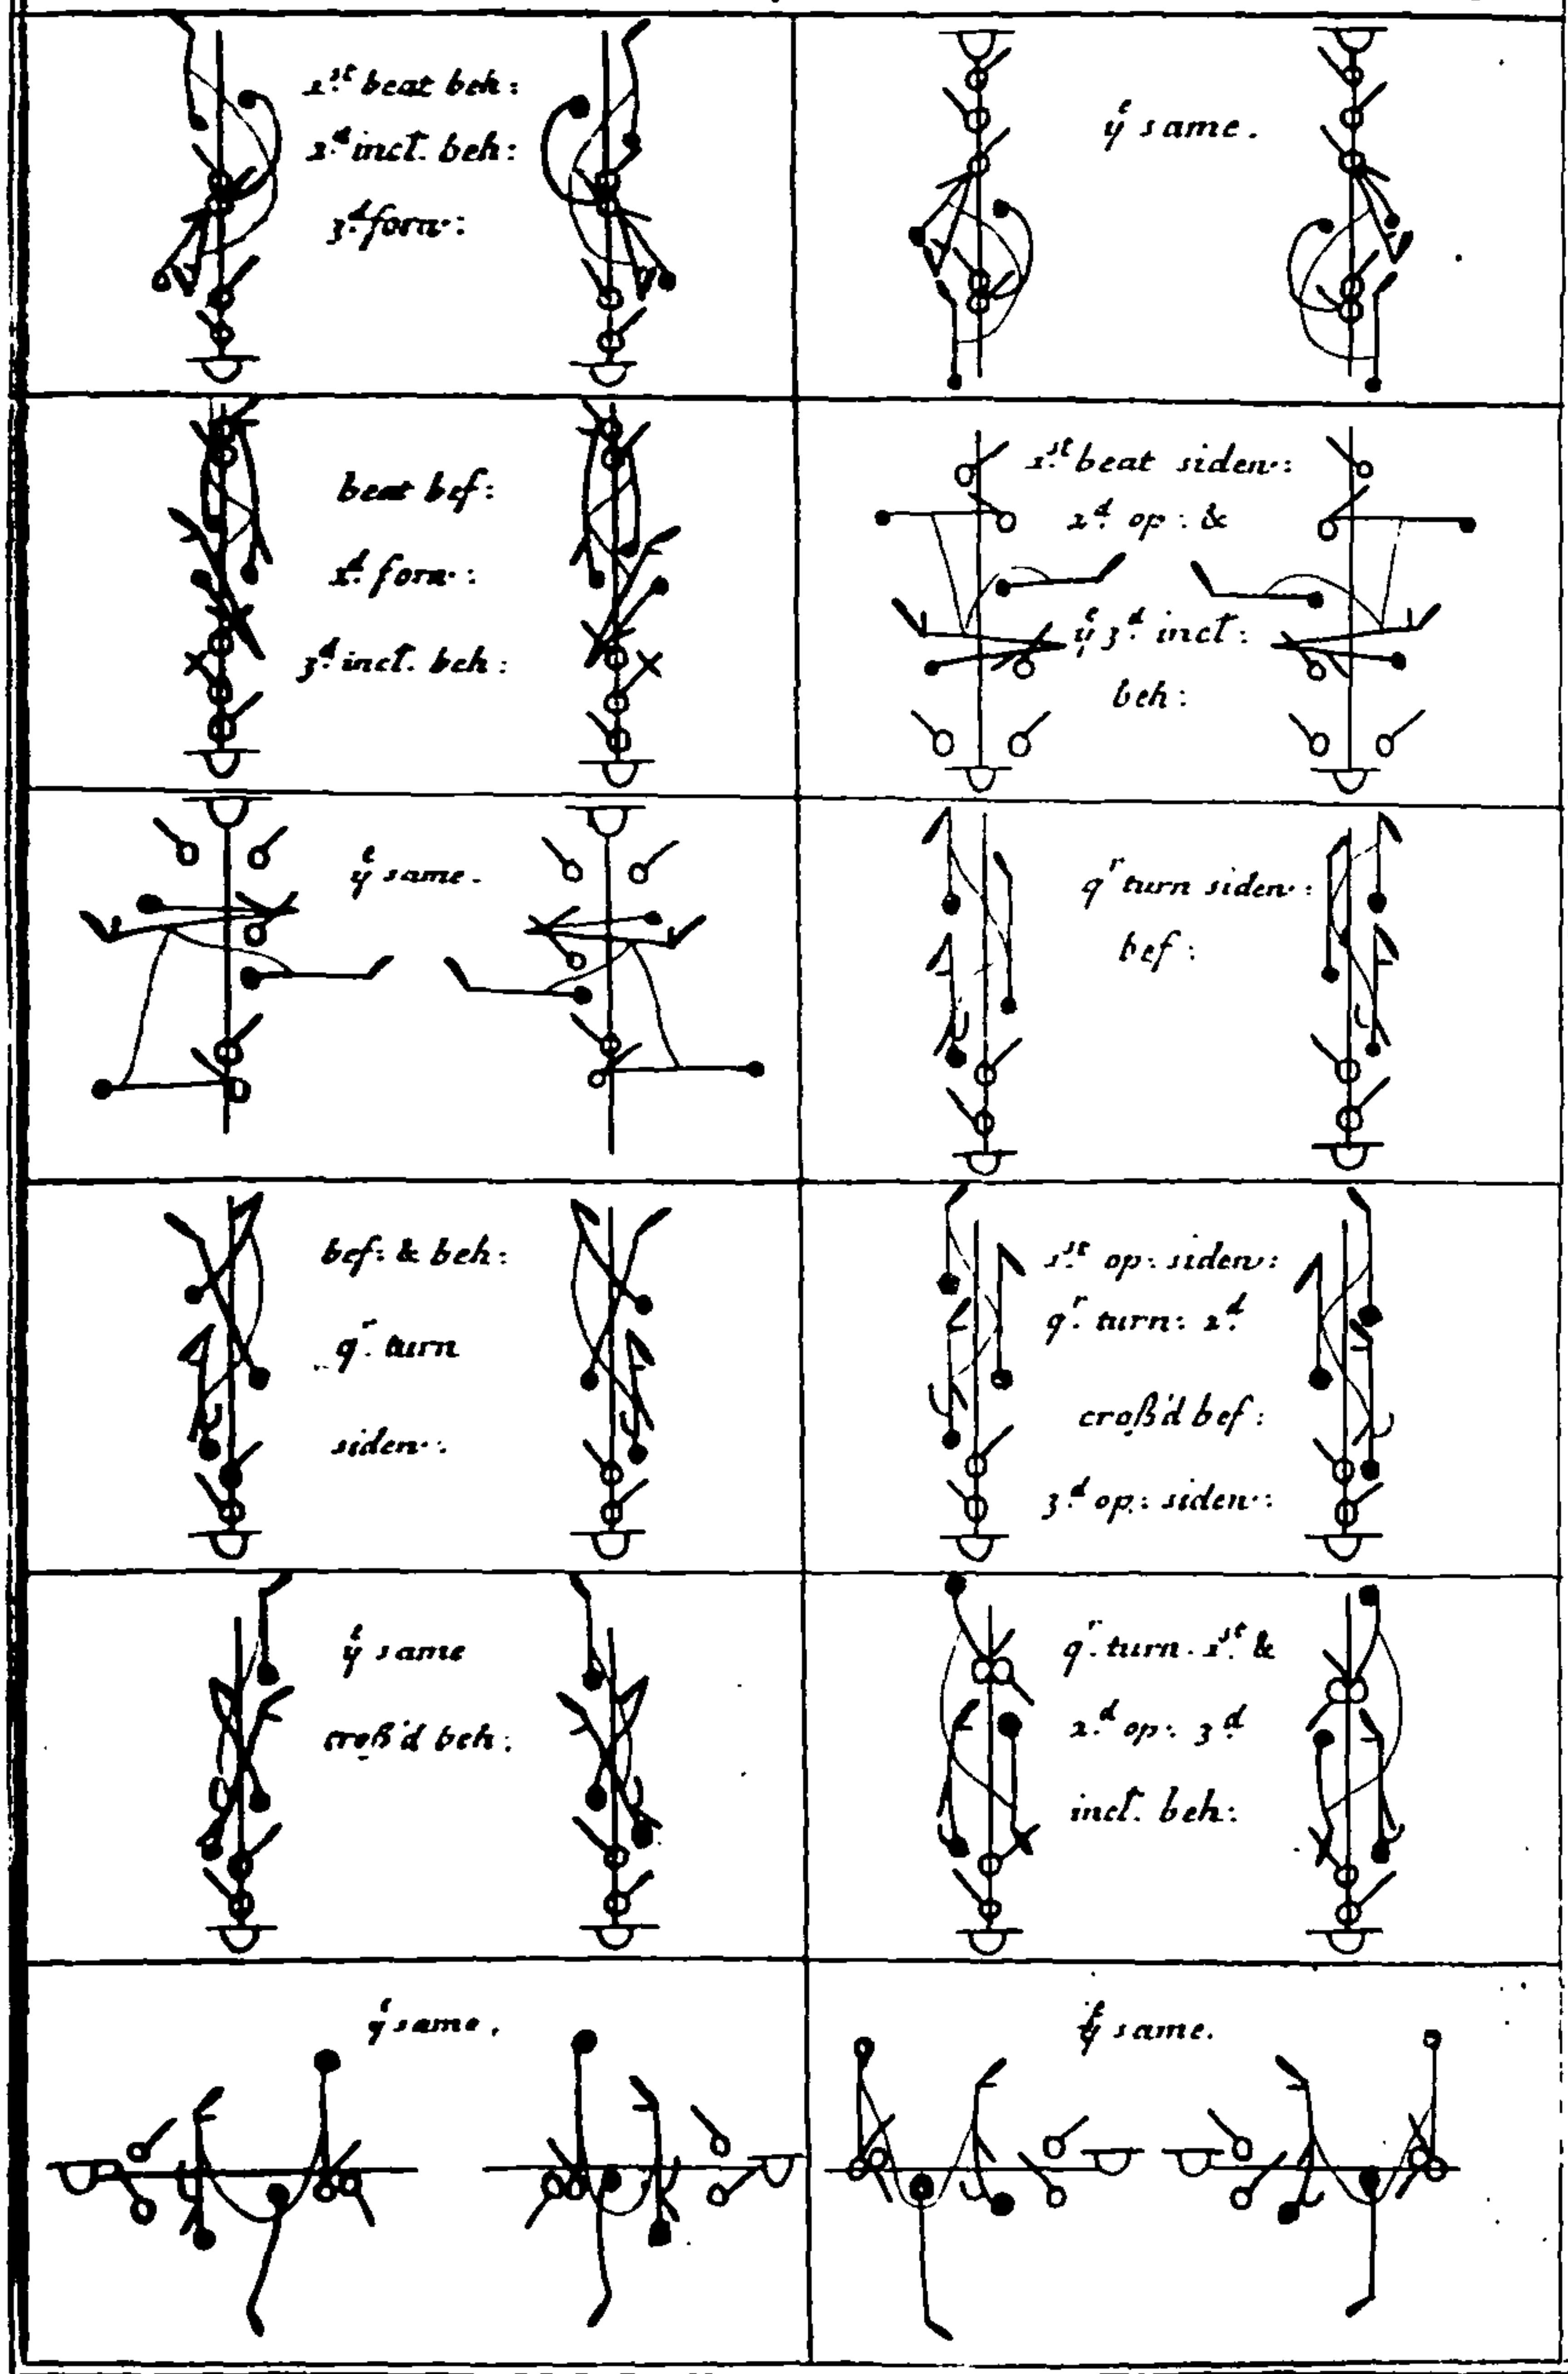 1.st beat beh:
2.d incl. beh:
3.d forw:
ye same.
beat bef:
2.d forw:
3.d incl. beh:
1.st beat sidew:
2.d op: &
ye 3.d incl:
beh:
ye same.
qr turn sidew:
bef:
bef: & beh:
qr. turn
sidew:
1.st op: sidew:
qr. turn: 2.d
croß'd bef:
3.d op: sidew:
ye same
croß'd beh:
qr. turn. 1.st &
2.d op: 3.d
incl. beh:
ye same.
ye same.